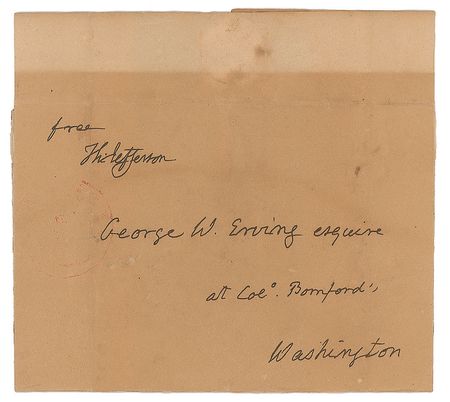 free
Th: Jefferson
George W. Erving esquire
at Colo. Bomford's
Washington